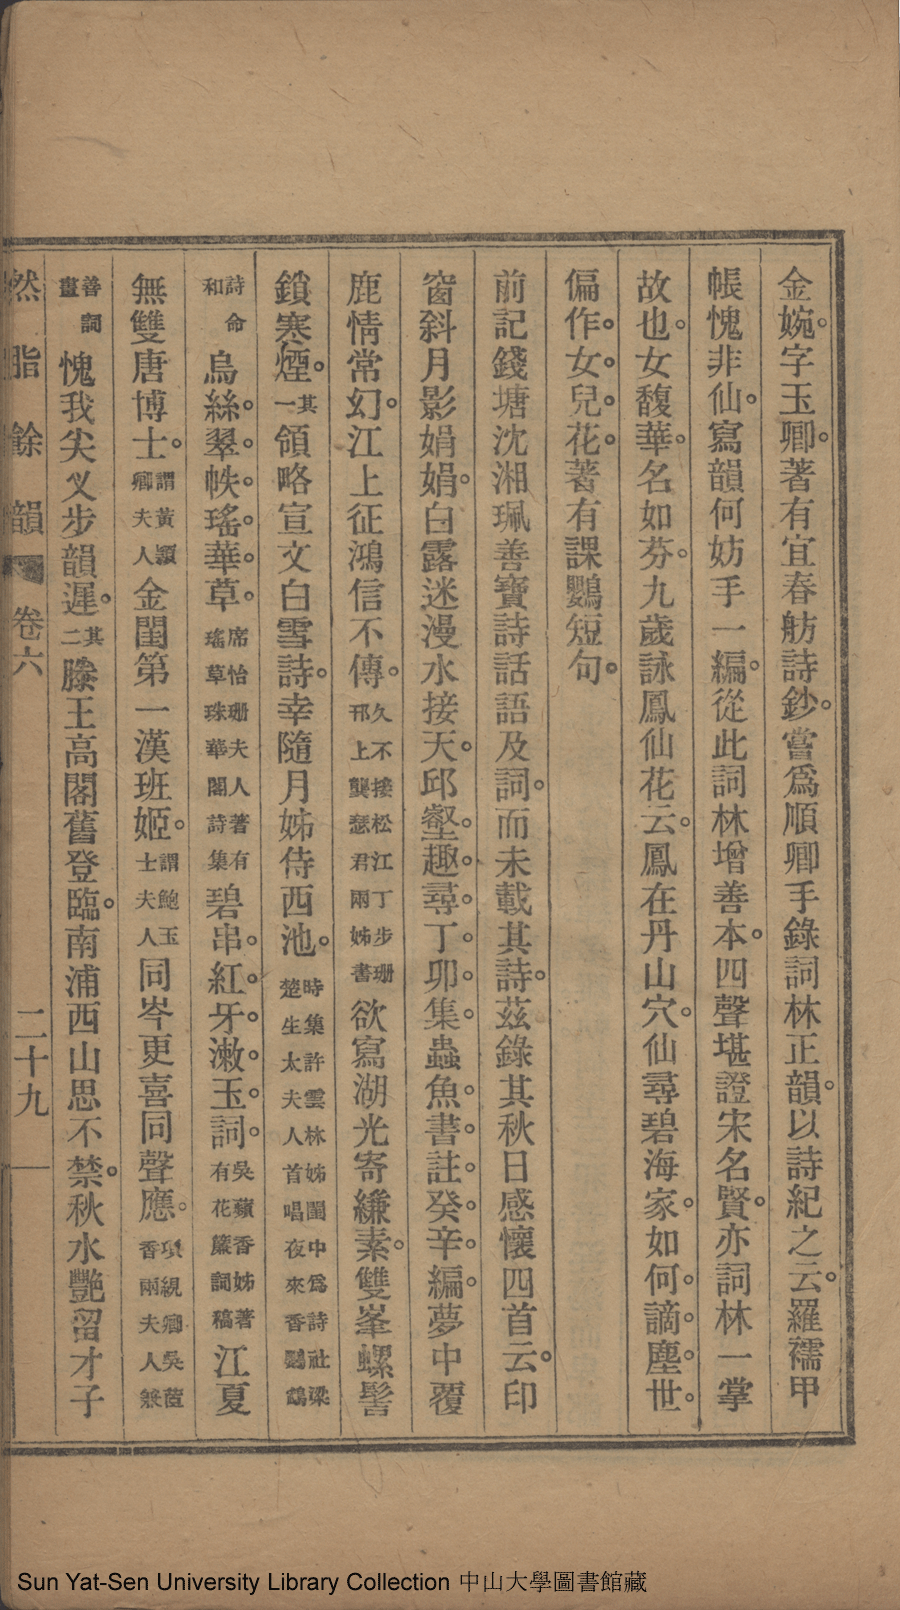 金婉。字玉卿。著有宜春舫詩鈔。嘗爲順卿手錄詞林正韻。以詩紀之云。羅襦甲
帳愧非仙。寫韻何妨手一編。從此詞林增善本。四聲堪證宋名賢。亦詞林一掌
故也。女馥華。名如芬。九歲詠鳳仙花云。鳳在丹山穴。仙尋碧海家。如何。謫。塵。世。
偏作。女。兒。花。著有課鸚短句。
前記錢塘沈湘珮善寶詩話語及詞。而未載其詩。茲錄其秋日感懷四首云。印
窗斜月影娟娟。白露迷漫水接天。邱壑。趣。尋。丁。卯。集。蟲魚。書。註。癸。辛。編。夢中覆
鹿情常幻。江上征鴻信不傳。久不接松江丁步珊邗上龔瑟君兩姊書欲寫湖光寄縑素。雙峯螺髻
鎖寒煙。其一領略宣文白雪詩。幸隨月姊侍西池。時集許雲林姊閨中爲詩社梁楚生太夫人首唱夜來香鸚鵡
詩命和烏絲。翠。帙。瑤。華。草。席怡珊夫人著有瑤草珠華閣詩集碧串。紅。牙。漱。玉。詞。吳蘋香姊著有花簾詞稿江夏
無雙唐博士。謂黃穎卿夫人金閨第一漢班姬。謂鮑玉士夫人同岑更喜同聲應。項絸卿吳茝香兩夫人兼
善詞畫愧我尖叉步韻遲。其二滕王高閣舊登臨。南浦西山思不禁。秋水艷留才子
然脂餘韻 卷六 二十九
Sun Yat-Sen University Library Collection 中山大學圖書館藏